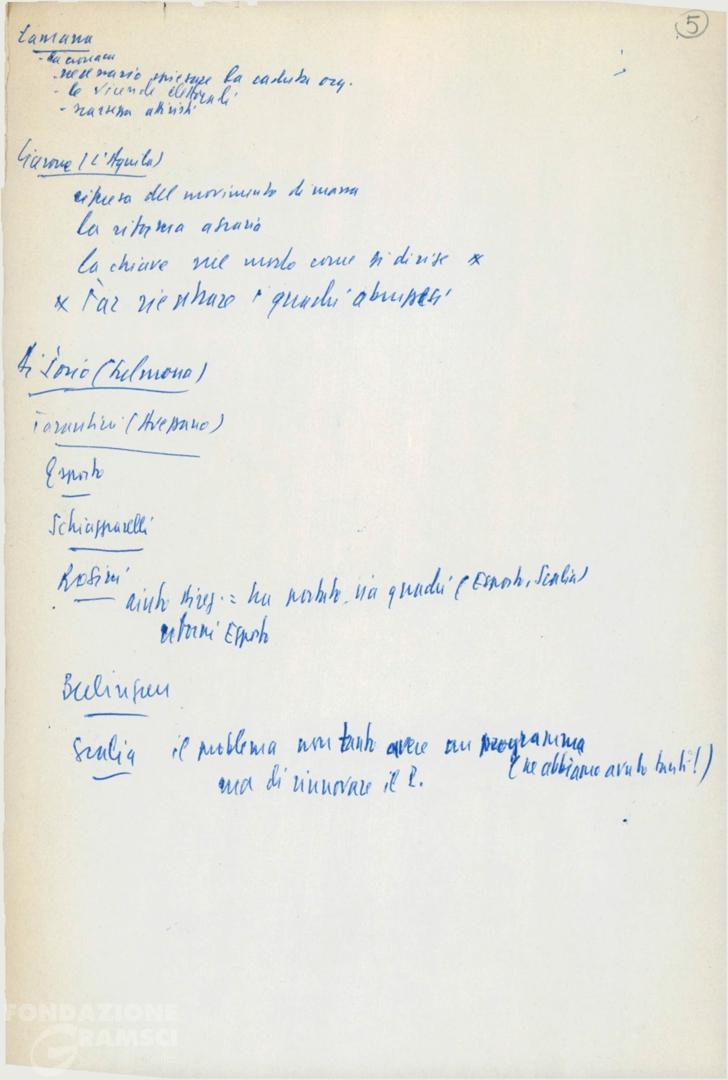 5
- la cronaca
- necessario spiegare la caduta org.
- le vicende elettorali
- scarsezza attivisti
Ciarone (L'Aquila)
ripresa del movimento di massa
la riforma agraria
la chiave nel modo come si dirige *
* Far rientrare i quadri abruzzesi
Di Iorio (Sulmona)
Tarantini (Avezzano)
Esposto
Schiapparelli
Rosini
aiuto direz. = ha portato via quadri (Esposto, Scalia)
ritorni Esposto
Berlinguer
Scalia il problema non tanto avere un programma
(ne abbiamo avuto tanti!)
ma di rinnovare il P.
FONDAZIONE
GRAMSCI